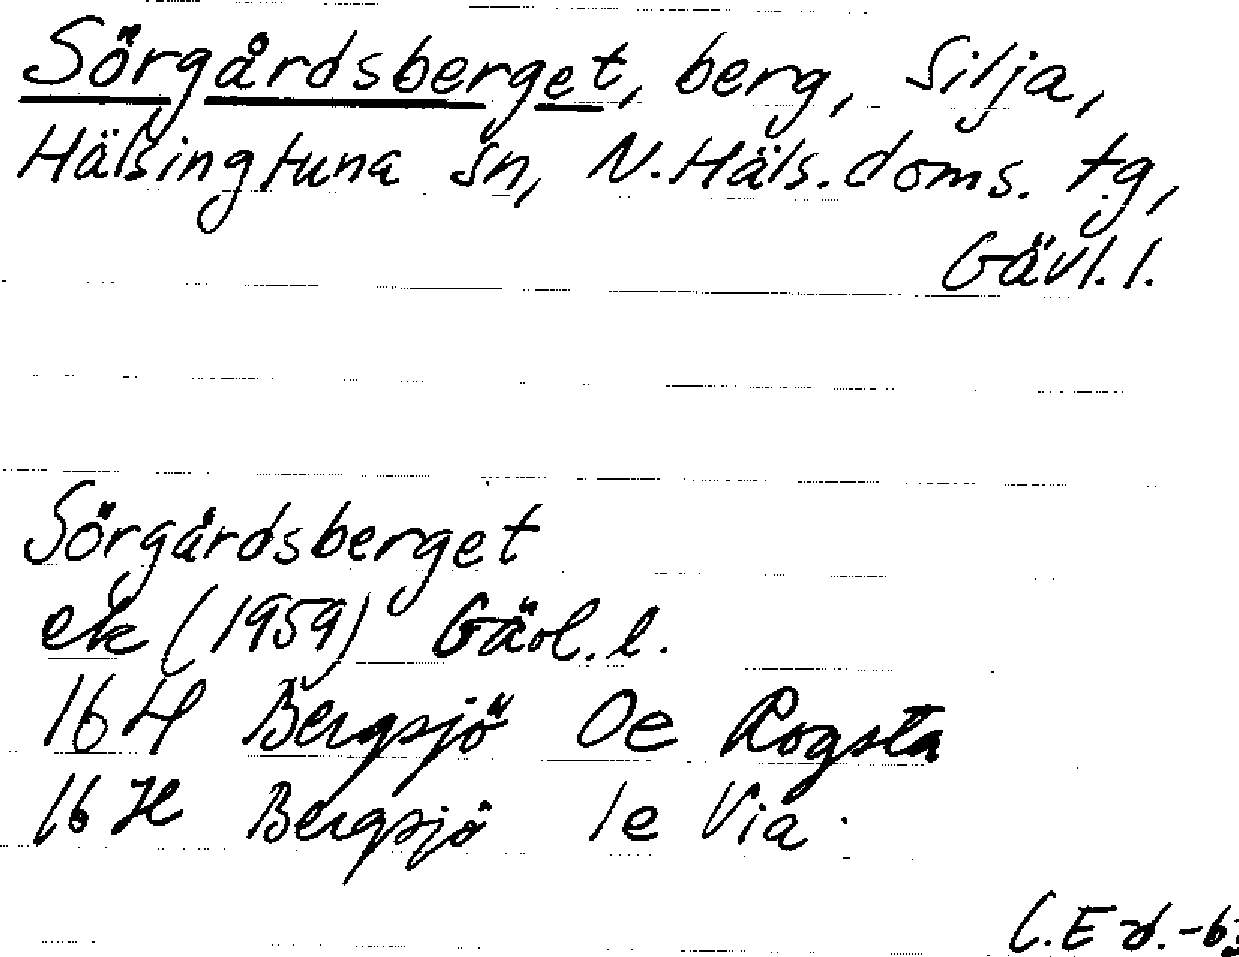 Sörgårdsberget, berg, Silja,
Hälsingtuna sn, N. Häls. doms. tg,
Gävl. l.
Sörgårdsberget
ek (1959) Gävl. l.
16 H Bergsjö 0e Rogsta
16 H Bergsjö 1e Via.
C. E d. -63